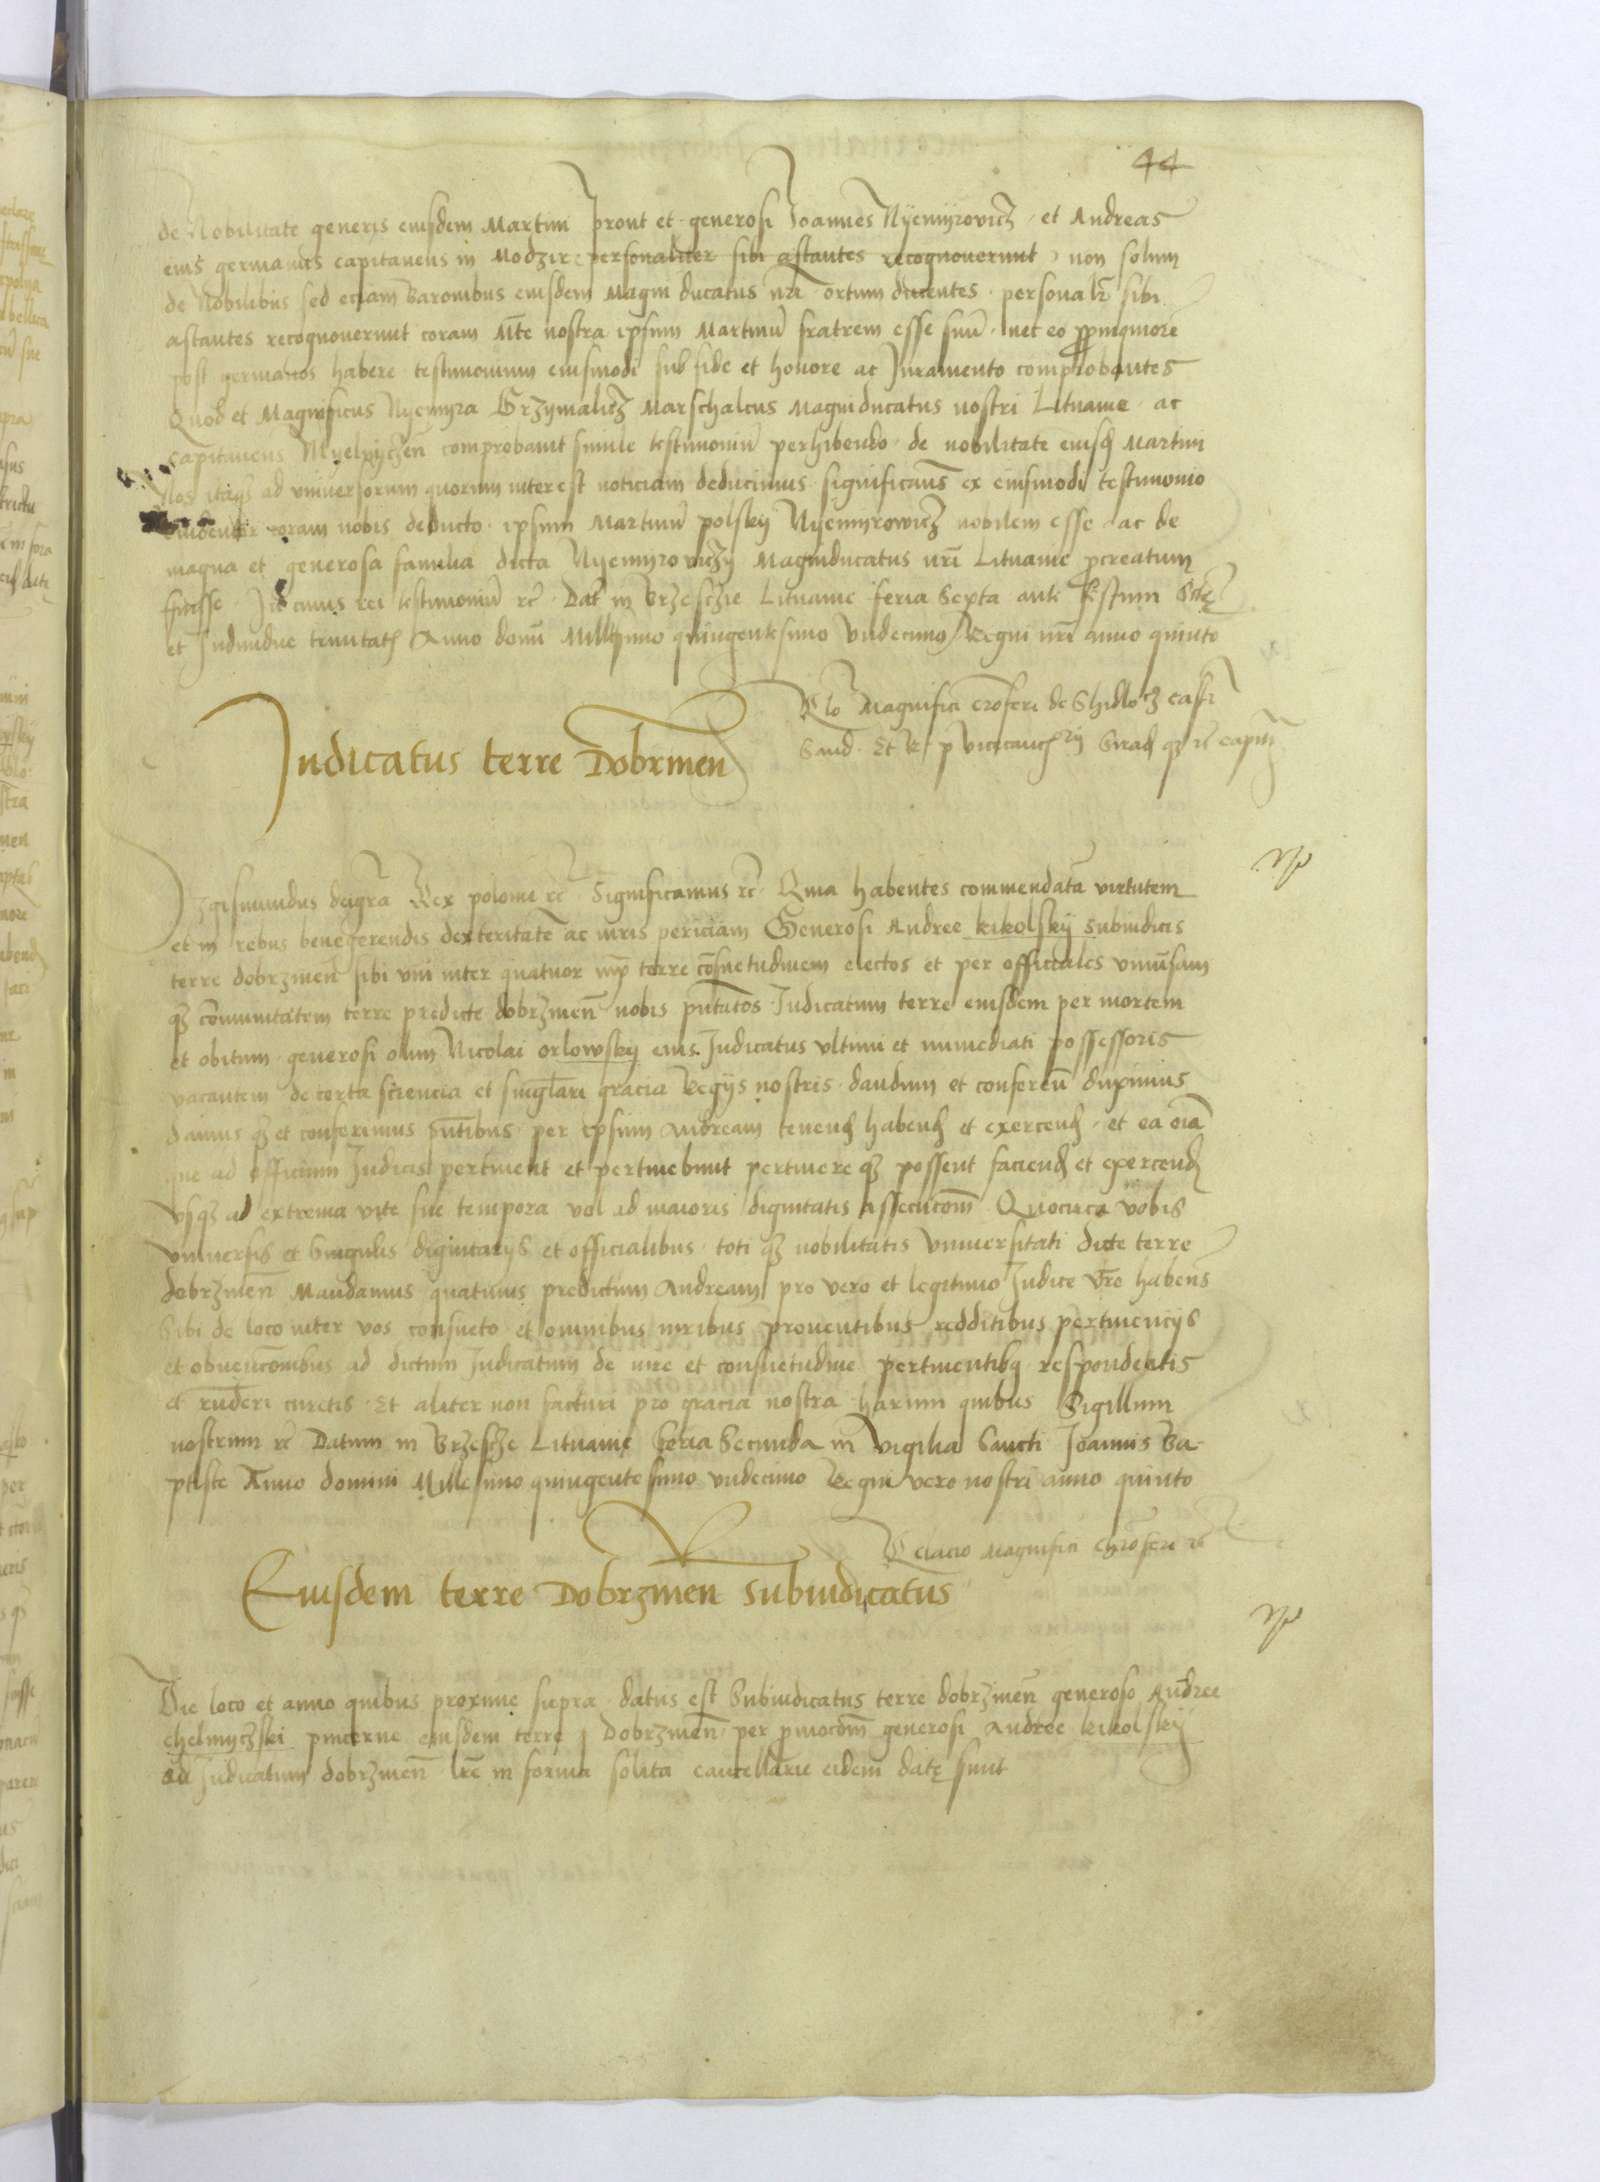 44
de Nobilitate generis eiusdem Martini prout et generosi Joannes Nyemyrovicz et Andreas
eius germanus capitaneus in Modzir personaliter sibi astantes recognoverunt non solum
de Nobilibus sed eciam Baronibus eiusdem Magni ducatus nri ortum ducentes personalr sibi
astantes recognoverunt coram Mte nostra ipsum Martinu fratrem esse suu nec eo ppinquiore
post germanos habere testimonium eiusmodi sub fide et honore ac Juramento comprobantes
Quod et Magnificus Nyemyra Grzymalicz Marschalcus Magniducatus nostri Lituanie ac
capitaneus Myelnyczen comprobavit simile testimoniu perhibendo de nobilitate eiusd Martini
Nos itaq ad universorum quorum interest noticiam deducimus significans ex eiusmodi testimonio
evidenter coram nobis deducto ipsum Martinu polsky Nyemyrowicz nobilem esse ac de
magna et generosa familia dicta Nyemyrowiczy Magniducatus nri Lituanie pcreatum
fuisse In cuius rei testimoniu rc Dat in Brzesczie Lituanie feria Sexta ante festum Scte
et Individue trinitatis Anno domi Millesimo quingentesimo Undecimo Regni nri anno quinto
Rlo Magnifici Crofori de Shidlovz cassri
Sand Et R p vicecancrij Sirad qz rc capit
Judicatus terre Dobrinen
Sigismundus deigra Rex polonie rc Significamus rc Quia habentes commendata virtutem
et in rebus benegerendis dexteritate ac iuris periciam Generosi Andree kikolsky Subiudicis
terre dobrzinen sibi uni inter quatuor iuxta terre cosuetudinem electos et per officiales universam
qz comunitatem terre predicte dobrzinen nobis putatos Judicatum terre eiusdem per mortem
et obitum generosi olim Nicolai orlowsky eius Judicatus ultimi et immediati possessoris
vacantem de certa sciencia et singlari gracia Regijs nostris dandum et conferedu duximus
damus qz et conferimus Sntibus per ipsum Andream tenend habend et exercend et ea oia
que ad officium Judicis pertinent et pertinebunt pertinere qz possent faciend et exercend
usqz ad extrema vite sue tempora vel ad maioris dignitatis assecucom Quocirca vobis
universis et Singulis dignitarijs et officialibus toti qz nobilitatis Universitati dicte terre
dobrzinen Mandamus quatinus predictum Andream pro vero et legitimo Judice vro habens
Sibi de loco inter vos consueto et omnibus iuribus proventibus redditibus pertinencijs
et obvencombus ad dictum Judicatum de iure et consuetudine pertinentibq respondeatis
et ruderi curetis Et aliter non facturi pro gracia nostra harum quibus Sigillum
nostrum rc Datum in Brzescze Lituanie feria Secunda in Vigilia Sancti Joannis Ba
ptiste Anno domini Millesimo quingentesimo undecimo Regni vero nostri anno quinto
Relacio Magnifici Chrofori rc
Eiusdem terre Dobrzinen Subiudicatus
Die loco et anno quibus proxime supra datus est Subiudicatus terre dobrzinen generoso Andree
chelmyczski pincerne eiusdem terre Dobrzinen per pmocom generosi Andree kikolsky
ad Judicatum dobrzinen lre in forma solita cancellarie eidem date sunt